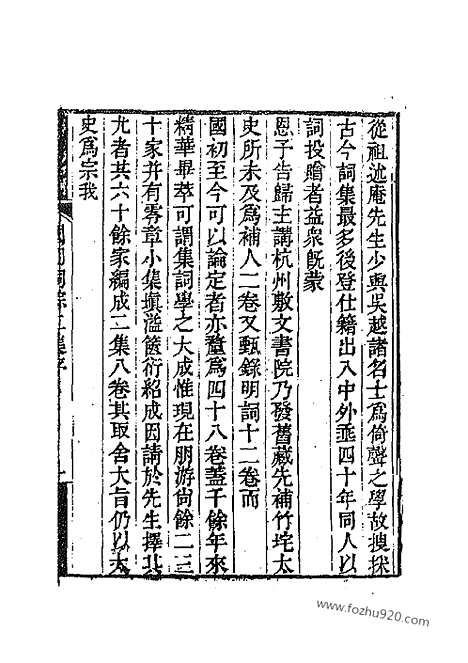 從祖述庵先生少與吳越諸名士爲倚聲之學故搜採
古今詞集最多後登仕籍出入中外垂四十年同人以
詞投贈者益衆旣蒙
恩予告歸主講杭州敷文書院乃發舊藏先補竹垞太
史所未及爲補人二卷又甄錄明詞十二卷而
國初至今可以論定者亦釐爲四十八卷蓋千餘年來
精華畢萃可謂集詞學之大成惟現在朋游尙餘二三
十家并有零章小集塡溢篋衍紹成因請於先生擇其
尤者其六十餘家編成二集八卷其取舍大旨仍以太
史爲宗我
國朝詞綜二集序
一
www.fozhu920.com